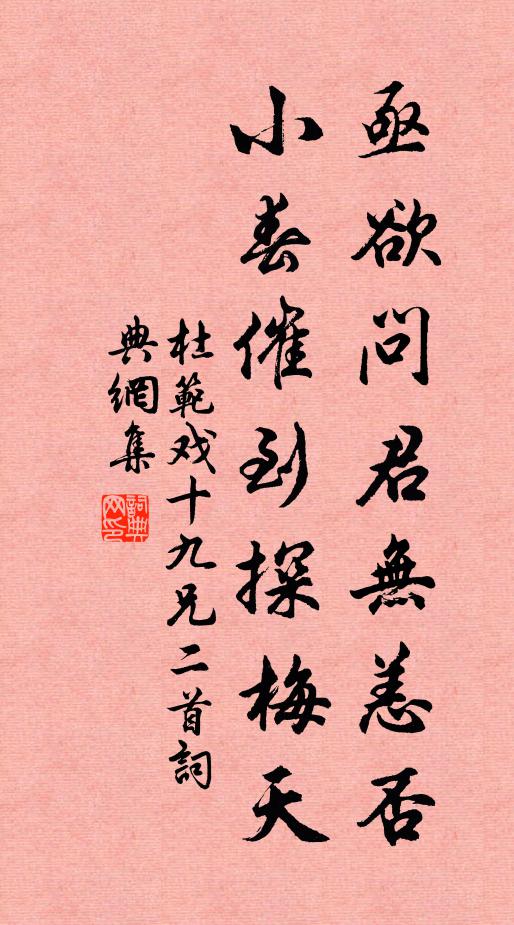 亟欲問君無恙否
小春催到探梅天
杜範戏十九兄二首詞
典網集
詞典网印